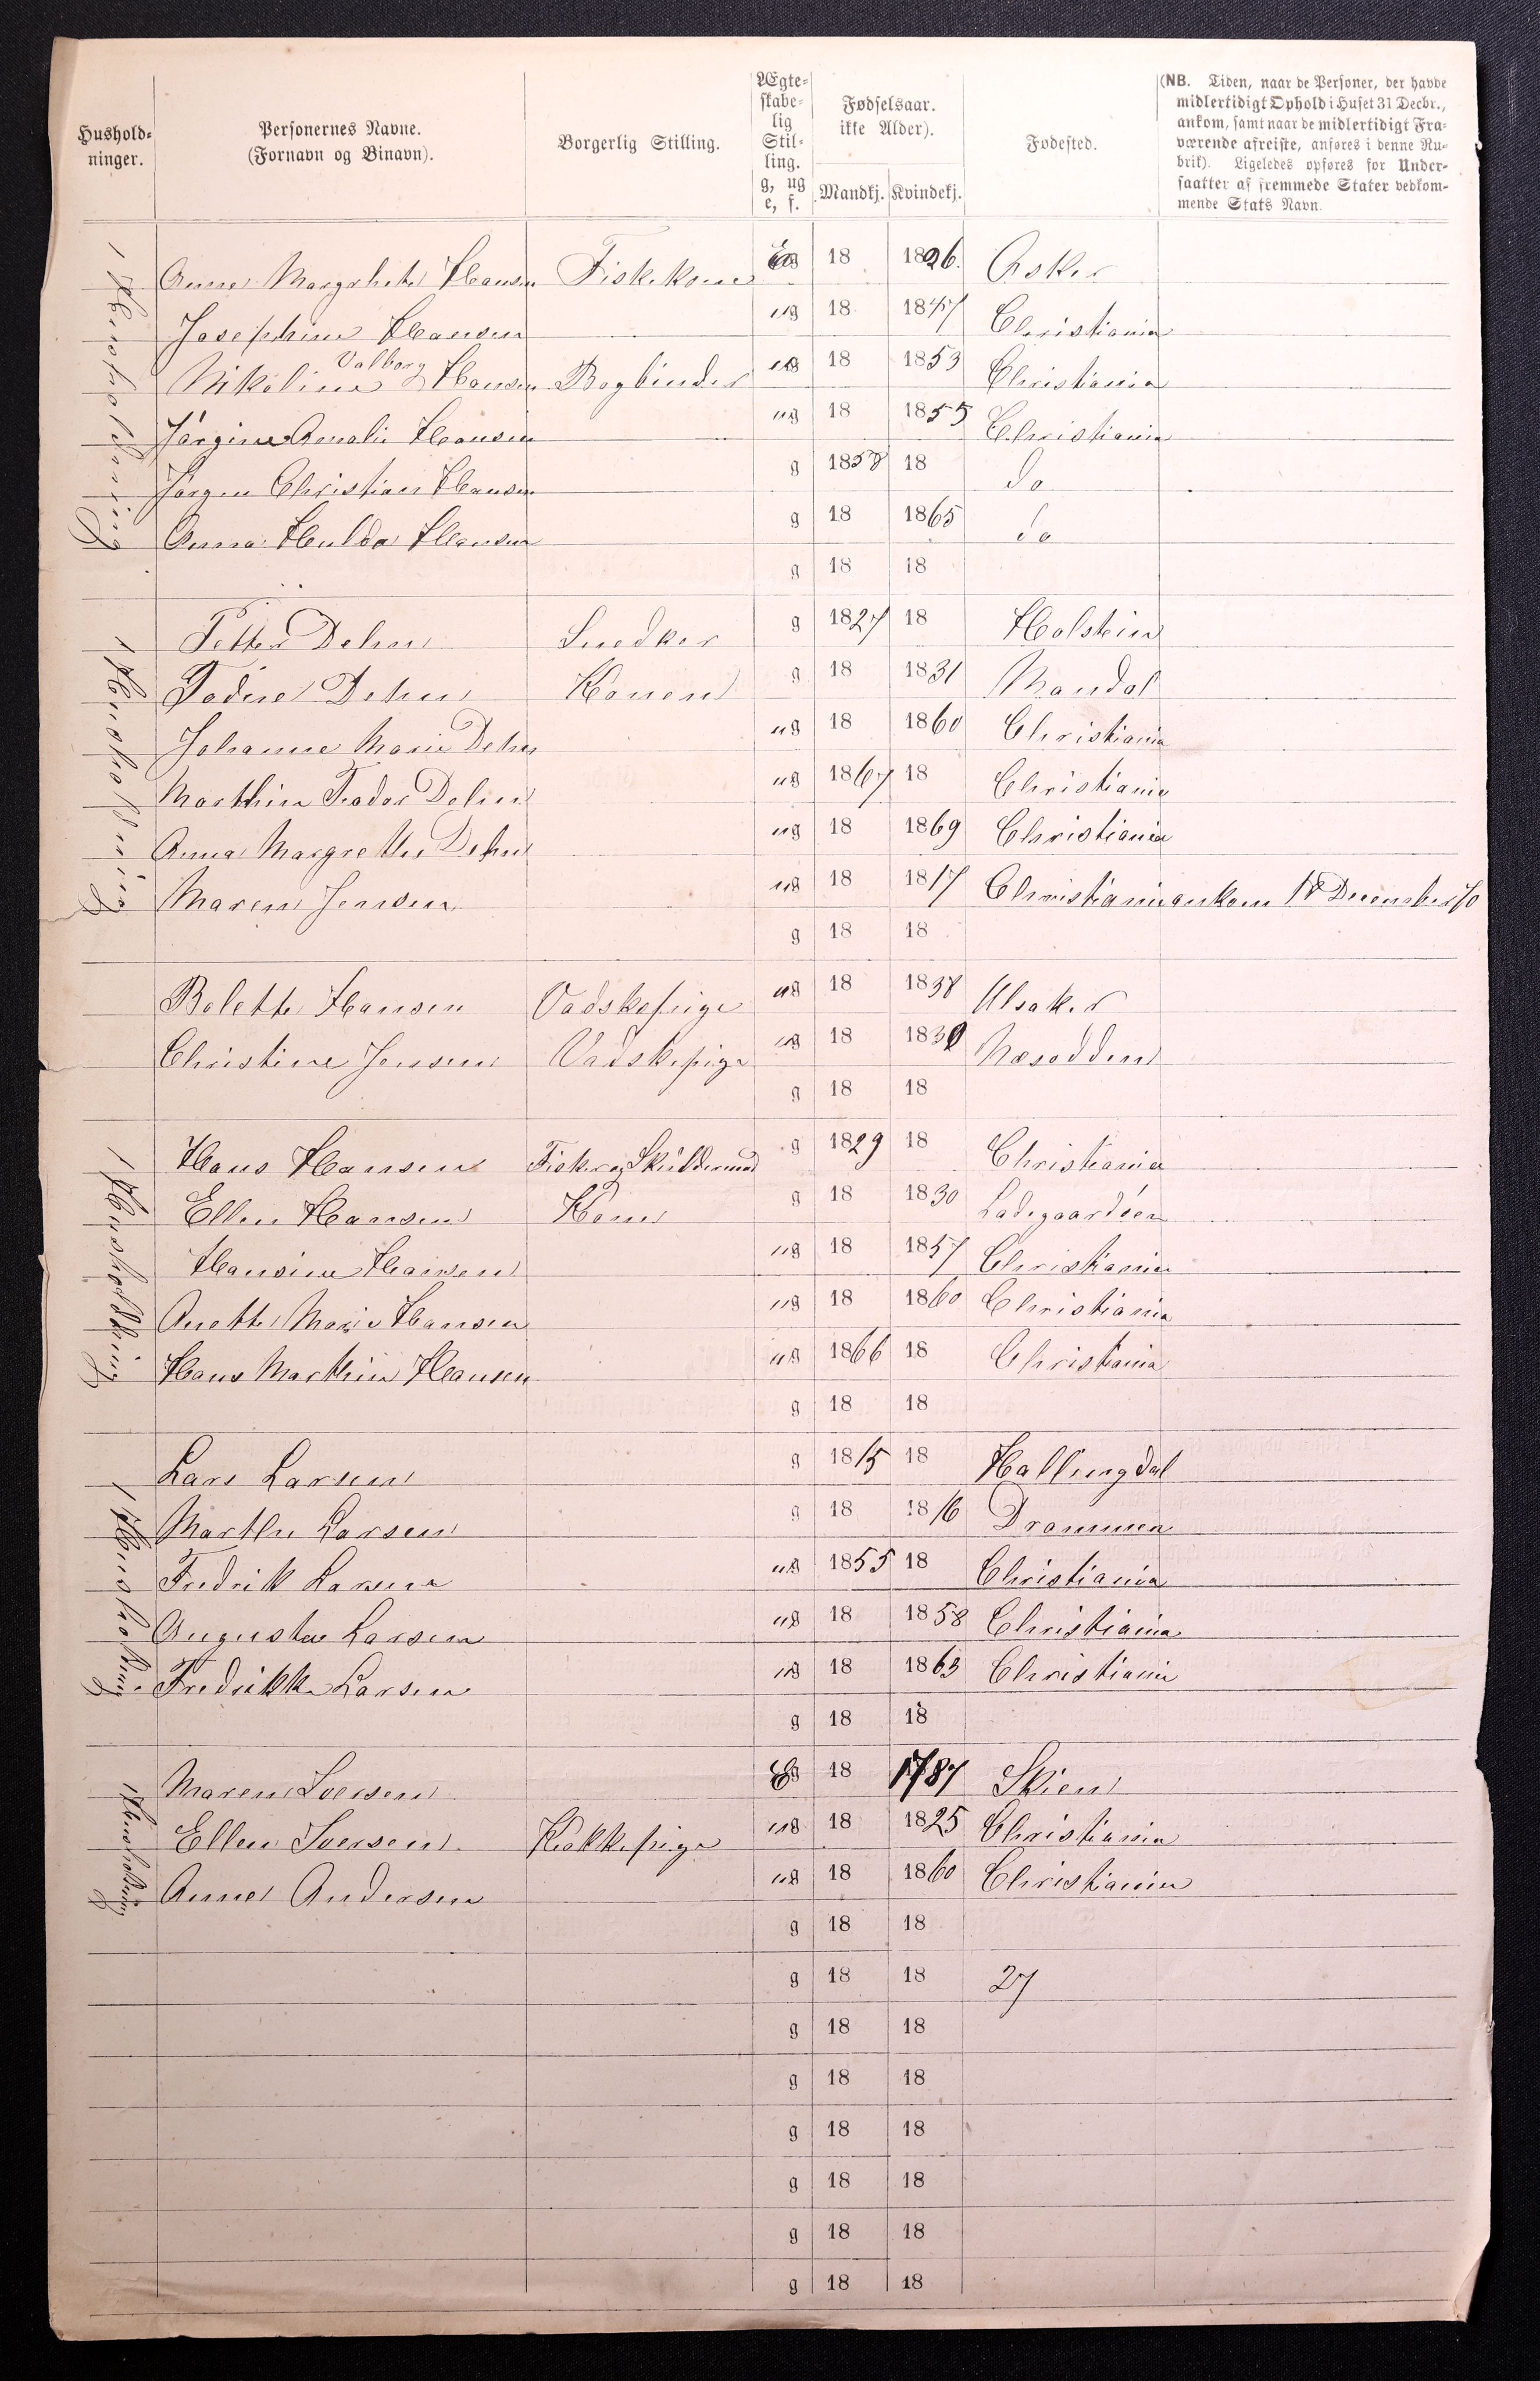 Hushold-
ninger.
Personernes Navne.
(Fornavn og Binavn).
Borgerlig Stilling.
Ægte-
skabe-
lig
Stil-
ling.
g, ug
e, f.
Fødselsaar.
ikke Alder).
Mandkj. Kvindekj.
Fødested.
(NB. Tiden, naar de Personer, der havde
midlertidigt Ophold i Huset 31 Decbr.,
ankom, samt naar de midlertidigt Fra-
værende afreiste, anføres i denne Ru-
brik). Ligeledes opføres for Under-
saatter af fremmede Stater vedkom-
mende Stats Navn.
1 Husholdning
Anne Margrhete Hansen Fiskekone Eg 18 1826. Asker
Josephine Hansen ug 18 1847 Christiania
Valborg
Nikoline Hansen Bogbinder ug 18 1853 Christiania
Jørgine Amalie Hansen ug 18 1855 Christiania
Jørgen Christian Hansen g 1858 18 do
Anna Hulda Hansen g 18 1865 do
g 18 18
1 Husholdning
Petter Dehn Snedker g 1827 18 Holstein
Todine Dehn Konen g 18 1831 Mandal
Johanne Marie Dehn ug 18 1860 Christiania
Marthin Teodor Dehn ug 1867 18 Christiania
Anna Margrethe Dehn ug 18 1869 Christiania
Maren Jensen ug 18 1817 Christiania ankom 18 December 70
g 18 18
Bolette Hansen Vadskepige ug 18 1838 Ulsaker
Christine Jensen Vadskepige ug 18 1830 Næsodden
g 18 18
1 Husholdning
Hans Hansen Fisker og g 1829 18 Christiania
Ellen Hansen Kone g 18 1830 Ladegaardsøen
Hansine Hansen ug 18 1857 Christiania
Anette Marie Hansen ug 18 1860 Christiania
Hans Marthin Hansen ug 1866 18 Christiania
g 18 18
1 Husholdning
Lars Larsen g 1815 18 Hallingdal
Marthe Larsen g 18 1816 Drammen
Fredrik Larsen ug 1855 18 Christiania
Augusta Larsen ug 18 1858 Christiania
Fredrikke Larsen ug 18 1863 Christiania
g 18 18
1 Husholdning
Maren Iversen Eg 18 1787 Skien
Ellen Iversen Kokkepige ug 18 1825 Christiania
Anne Andersen ug 18 1860 Christiania
g 18 18
g 18 18 27
g 18 18
g 18 18
g 18 18
g 18 18
g 18 18
g 18 18